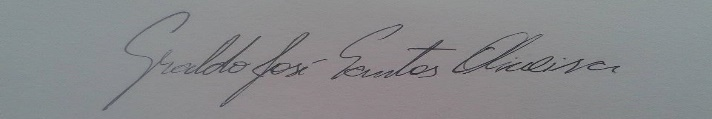 Eraldo José Santos Oliveira